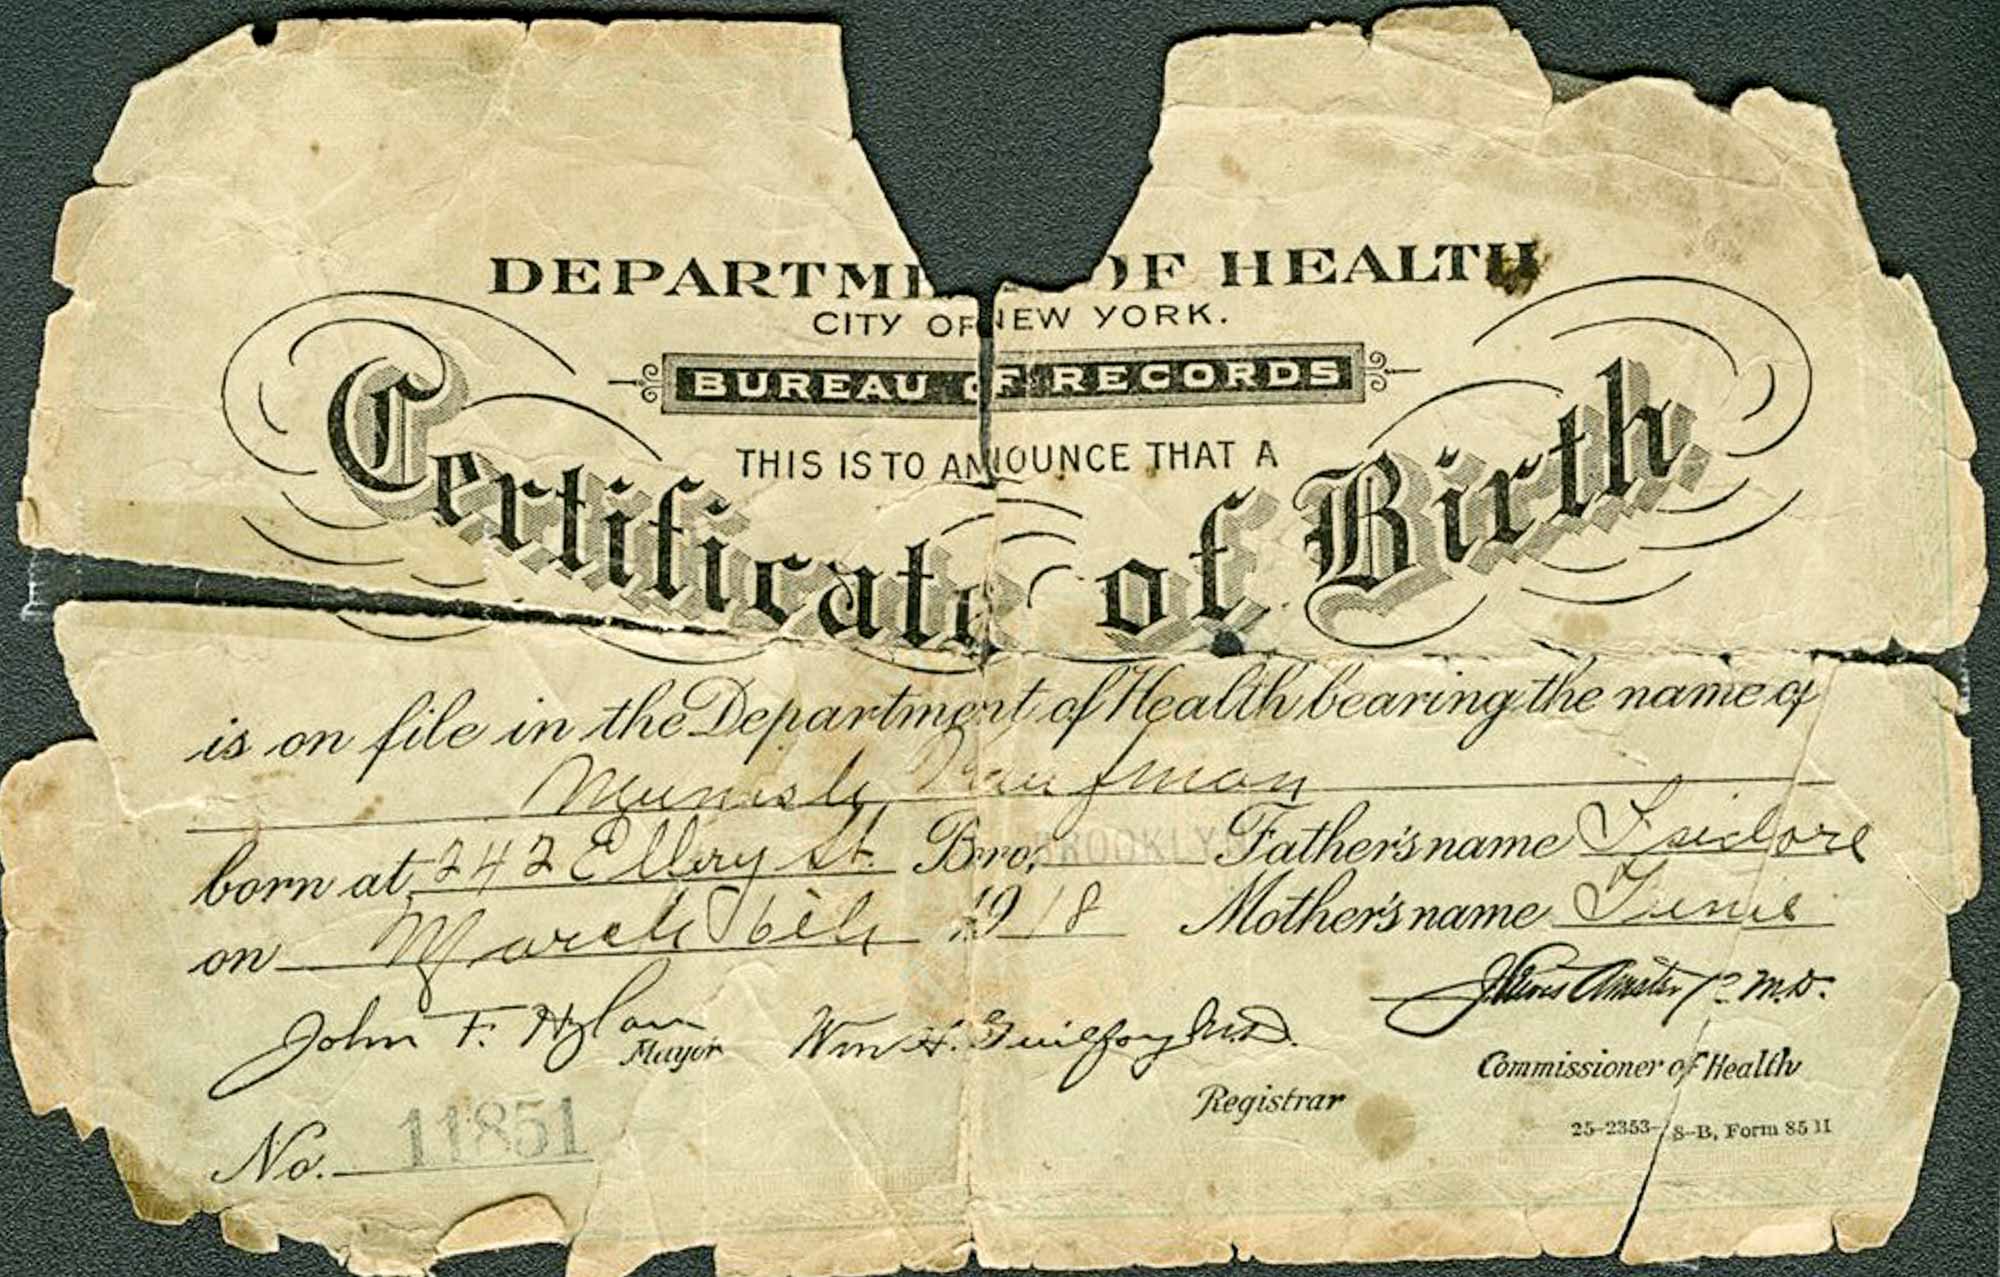 DEPARTM OF HEALTH
CITY OF NEW YORK.
BUREAU OF RECORDS
THIS IS TO ANNOUNCE THAT A
Certificate of Birth
is on file in the Department of Health bearing the name of
Kaufman
born at 242 Ellery St. Bro. BROOKLYN Father's name Isidore
on March 6th 1918 Mother's name
John F. Hylan Wm H. Guilfoy M.D. M.D.
Mayor Registrar Commissioner of Health
25-2353- S-B, Form 85 H
No. 11851